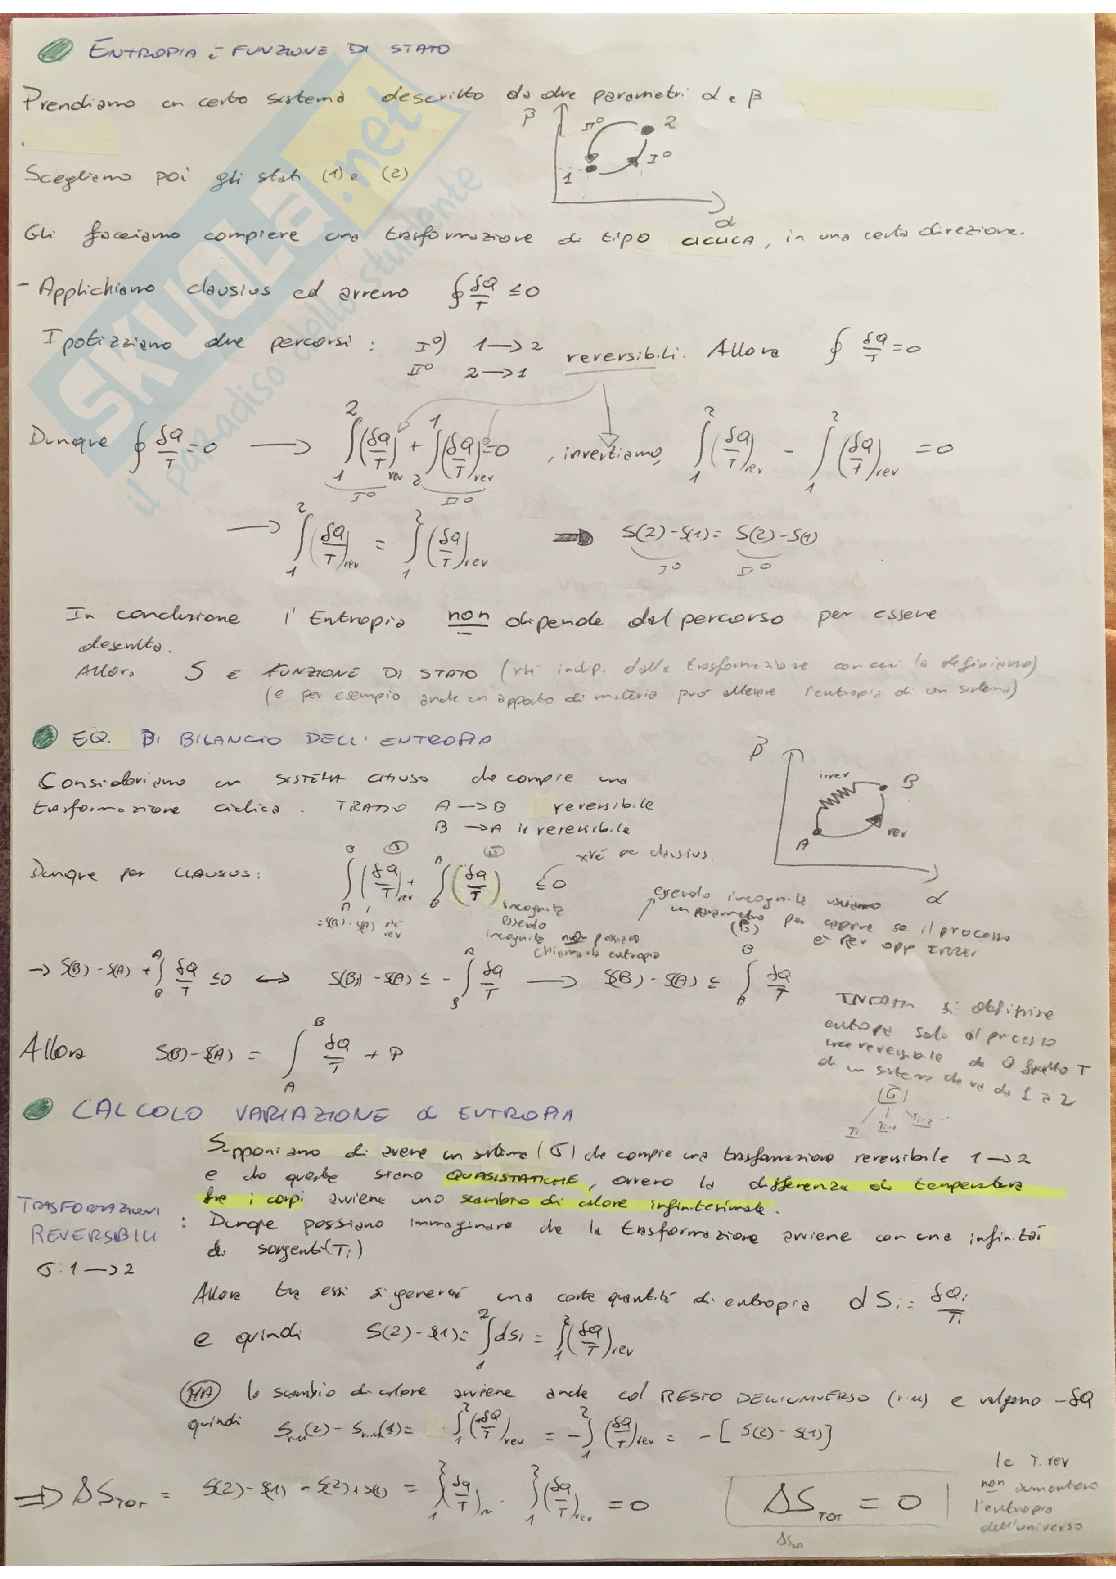 ENTROPIA È FUNZIONE DI STATO
Prendiamo un certo sistema descritto da due parametri α e β
β
II°
2
I°
1
α
Scegliamo poi gli stati (1) e (2)
Gli facciamo compiere una trasformazione di tipo CICLICA, in una certa direzione.
- Applichiamo clausius ed avremo ∮ δQ/T ≤ 0
Ipotizziamo due percorsi : I°) 1 → 2 reversibili. Allora ∮ δQ/T = 0
II° 2 → 1
Dunque ∮ δQ/T = 0 → ∫₁² (δQ/T)rev + ∫₂¹ (δQ/T)rev = 0 , invertiamo, ∫₁² (δQ/T)rev - ∫₁² (δQ/T)rev = 0
I° II°
→ ∫₁² (δQ/T)rev = ∫₁² (δQ/T)rev ⇒ S(2) - S(1) = S(2) - S(1)
I° II°
In conclusione l'Entropia non dipende dal percorso per essere
descritta.
Allora S È FUNZIONE DI STATO ( indip. dalla trasformazione con cui la definiamo)
(e per esempio anche un apporto di materia può alterare l'entropia di un sistema)
EQ. DI BILANCIO DELL'ENTROPIA
Consideriamo un SISTEMA CHIUSO che compie una
trasformazione ciclica. TRATTO A → B reversibile
B → A irreversibile
β
irrev
B
A
rev
α
Dunque per CLAUSIUS: ∫ (δQ/T)rev + ∫ (δQ/T) ≤ 0
xké per clausius
= S(B) - S(A)
incognita
essendo
incognita non possiamo
chiamarla entropia
essendo incognita usiamo
un parametro per capire se il processo
è rev opp IRREV
→ S(B) - S(A) + ∫ δQ/T ≤ 0 ⇔ S(B) - S(A) ≤ - ∫ δQ/T → S(B) - S(A) ≤ ∫ δQ/T
Allora S(B) - S(A) = ∫ δQ/T + P
INFATTI si definisce
entropia solo il processo
reversibile da Q fratto T
di un sistema che va da 1 a 2
CALCOLO VARIAZIONE di ENTROPIA
TRASFORMAZIONI
REVERSIBILI
σ: 1 → 2
Supponiamo di avere un sistema (σ) che compie una trasformazione reversibile 1 → 2
e che queste siano QUASISTATICHE, ovvero la differenza di temperatura
fra i corpi avviene uno scambio di calore infinitesimale.
: Dunque possiamo immaginare che la trasformazione avviene con una infinità
di sorgenti (Ti)
Allora tra essi si genererà una certa quantità di entropia dSi = δQi/Ti
e quindi S(2) - S(1) = ∫₁² dSi = ∫₁² (δQ/T)rev
MA lo scambio di calore avviene anche col RESTO DELL'UNIVERSO e valgono -δQ
quindi (2) - (1) = ∫₁² (-δQ/T)rev = - ∫₁² (δQ/T)rev = - [S(2) - S(1)]
⇒ ΔSTOT = S(2) - S(1) - S(2) + S(1) = ∫₁² (δQ/T) - ∫₁² (δQ/T)rev = 0
ΔSTOT = 0
le T. rev
non aumentano
l'entropia
dell'universo
SKUOLA.net
il paradiso dello studente